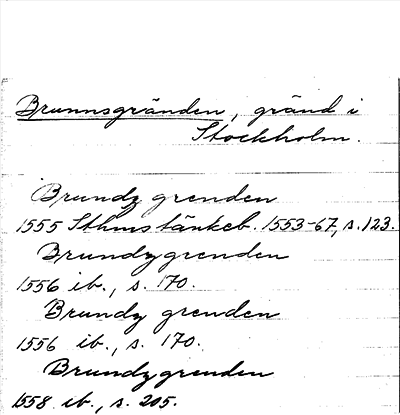 Brunnsgränden, gränd i
Stockholm.
Brundz grenden
1555 Sthms tänkeb. 1553-67, s. 123.
Brundzgrenden
1556 ib., s. 170.
Brundz grenden
1556 ib., s. 170.
Brundzgrenden
1558 ib., s. 205.